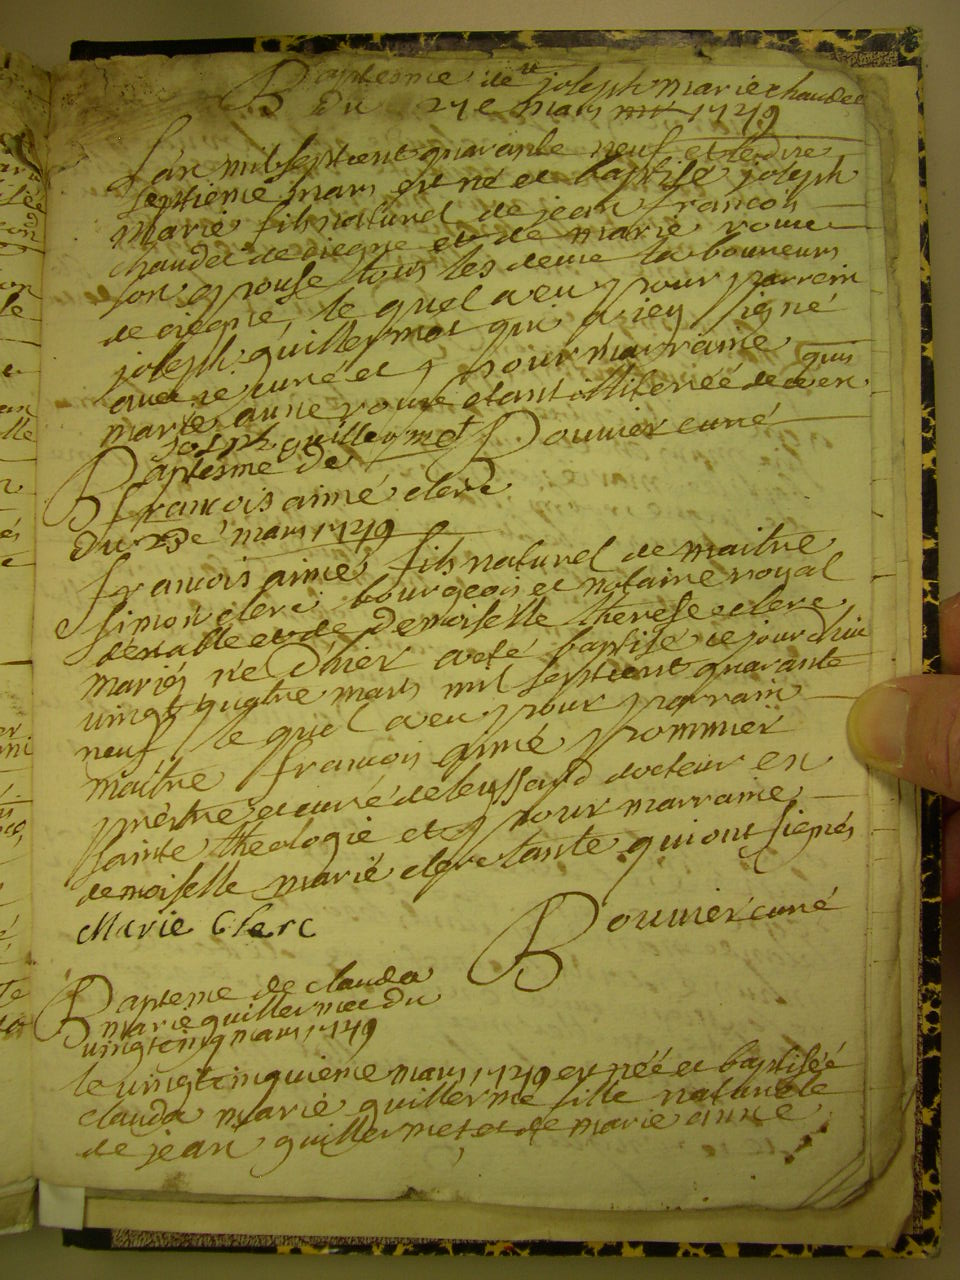 Baptesme de joseph marie chaudet
Du 27e mars 1749
L'an mil sept cent quarante neuf et le dixe
septieme mars est né et baptisé joseph
marie fils naturel de jean francois
chaudet de et de marie roure
son epouse tous les deux laboureurs
de le quel a eu pour parrein
joseph guillermot qui a icy signé
avec le curé et pour marraine
marie anne roure etant illiteréé de ce en
joseph guillermet Bouvier curé
Baptesme de
francois aimé clerc
du 23e mars 1749
francois aimé fils naturel de maitre
simon clerc bourgeois et notaire royal
et de Demoiselle therese clerc
mariés né d'hier a eté baptisé ce jourdhui
vingt quatre mars mil sept cent quarante
neuf le quel a eu pour parrain
maitre francois aimé pommier
prestre et curé de docteur en
sainte theologie et pour marraine
demoiselle marie clerc tante qui ont signés
Marie Clerc
Bouvier curé
Bapteme de clauda
marie guillermet du
vingtcinq mars 1749
le vingtcinquieme mars 1749 est néé et baptiséé
clauda marie guillerme fille naturelle
de jean guillermet et de marie anne